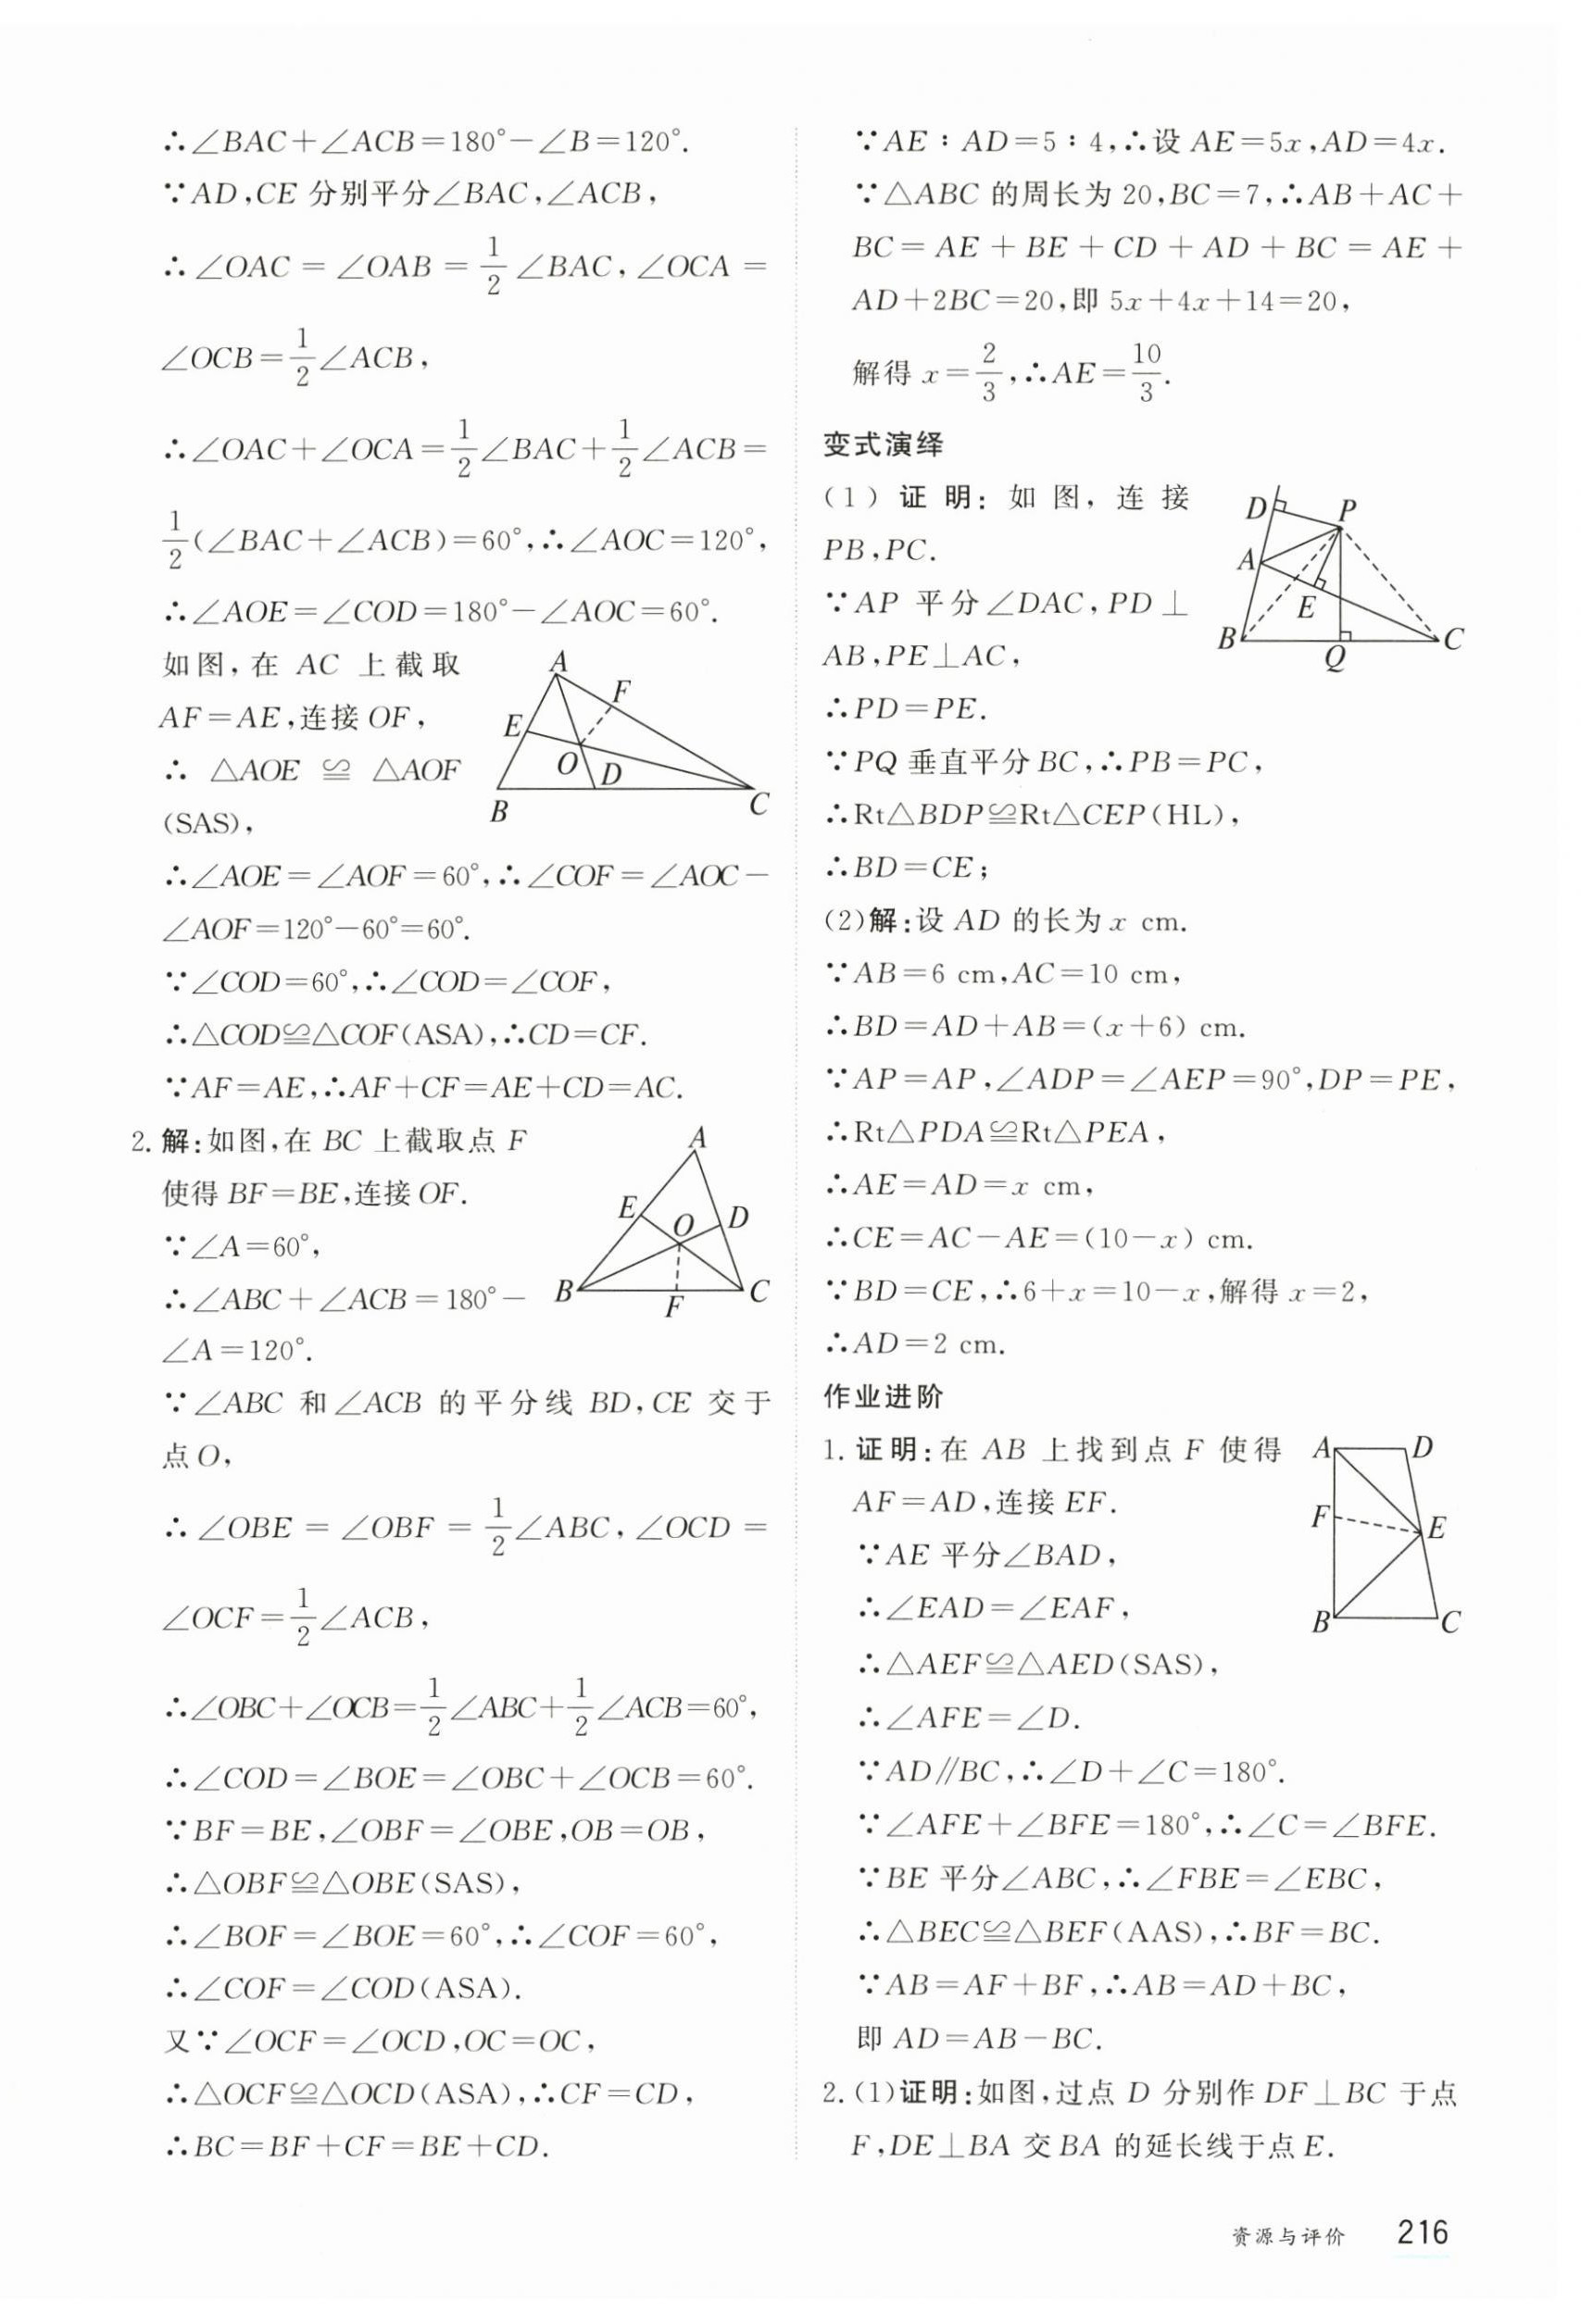 ∴∠BAC+∠ACB=180°-∠B=120°.
∵AD,CE 分别平分∠BAC,∠ACB,
∴∠OAC=∠OAB=1/2∠BAC,∠OCA=
∠OCB=1/2∠ACB,
∴∠OAC+∠OCA=1/2∠BAC+1/2∠ACB=
1/2(∠BAC+∠ACB)=60°,∴∠AOC=120°,
∴∠AOE=∠COD=180°-∠AOC=60°.
如图,在 AC 上截取
AF=AE,连接 OF,
∴ △AOE ≌ △AOF
(SAS),
A
F
E
O
D
B
C
∴∠AOE=∠AOF=60°,∴∠COF=∠AOC-
∠AOF=120°-60°=60°.
∵∠COD=60°,∴∠COD=∠COF,
∴△COD≌△COF(ASA),∴CD=CF.
∵AF=AE,∴AF+CF=AE+CD=AC.
2. 解:如图,在 BC 上截取点 F
使得 BF=BE,连接 OF.
∵∠A=60°,
∴∠ABC+∠ACB=180°-
∠A=120°.
A
E
O
D
B
F
C
∵∠ABC 和∠ACB 的平分线 BD,CE 交于
点 O,
∴∠OBE=∠OBF=1/2∠ABC,∠OCD=
∠OCF=1/2∠ACB,
∴∠OBC+∠OCB=1/2∠ABC+1/2∠ACB=60°,
∴∠COD=∠BOE=∠OBC+∠OCB=60°.
∵BF=BE,∠OBF=∠OBE,OB=OB,
∴△OBF≌△OBE(SAS),
∴∠BOF=∠BOE=60°,∴∠COF=60°,
∴∠COF=∠COD(ASA).
又∵∠OCF=∠OCD,OC=OC,
∴△OCF≌△OCD(ASA),∴CF=CD,
∴BC=BF+CF=BE+CD.
∵AE:AD=5:4,∴设 AE=5x,AD=4x.
∵△ABC 的周长为 20,BC=7,∴AB+AC+
BC=AE+BE+CD+AD+BC=AE+
AD+2BC=20,即 5x+4x+14=20,
解得 x=2/3,∴AE=10/3.
变式演绎
(1)证明:如图,连接
PB,PC.
∵AP 平分∠DAC,PD⊥
AB,PE⊥AC,
D
P
A
E
B
Q
C
∴PD=PE.
∵PQ 垂直平分 BC,∴PB=PC,
∴Rt△BDP≌Rt△CEP(HL),
∴BD=CE;
(2)解:设 AD 的长为 x cm.
∵AB=6 cm,AC=10 cm,
∴BD=AD+AB=(x+6) cm.
∵AP=AP,∠ADP=∠AEP=90°,DP=PE,
∴Rt△PDA≌Rt△PEA,
∴AE=AD=x cm,
∴CE=AC-AE=(10-x) cm.
∵BD=CE,∴6+x=10-x,解得 x=2,
∴AD=2 cm.
作业进阶
1. 证明:在 AB 上找到点 F 使得
AF=AD,连接 EF.
∵AE 平分∠BAD,
∴∠EAD=∠EAF,
A
D
F
E
B
C
∴△AEF≌△AED(SAS),
∴∠AFE=∠D.
∵AD∥BC,∴∠D+∠C=180°.
∵∠AFE+∠BFE=180°,∴∠C=∠BFE.
∵BE 平分∠ABC,∴∠FBE=∠EBC,
∴△BEC≌△BEF(AAS),∴BF=BC.
∵AB=AF+BF,∴AB=AD+BC,
即 AD=AB-BC.
2. (1)证明:如图,过点 D 分别作 DF⊥BC 于点
F,DE⊥BA 交 BA 的延长线于点 E.
资源与评价 216